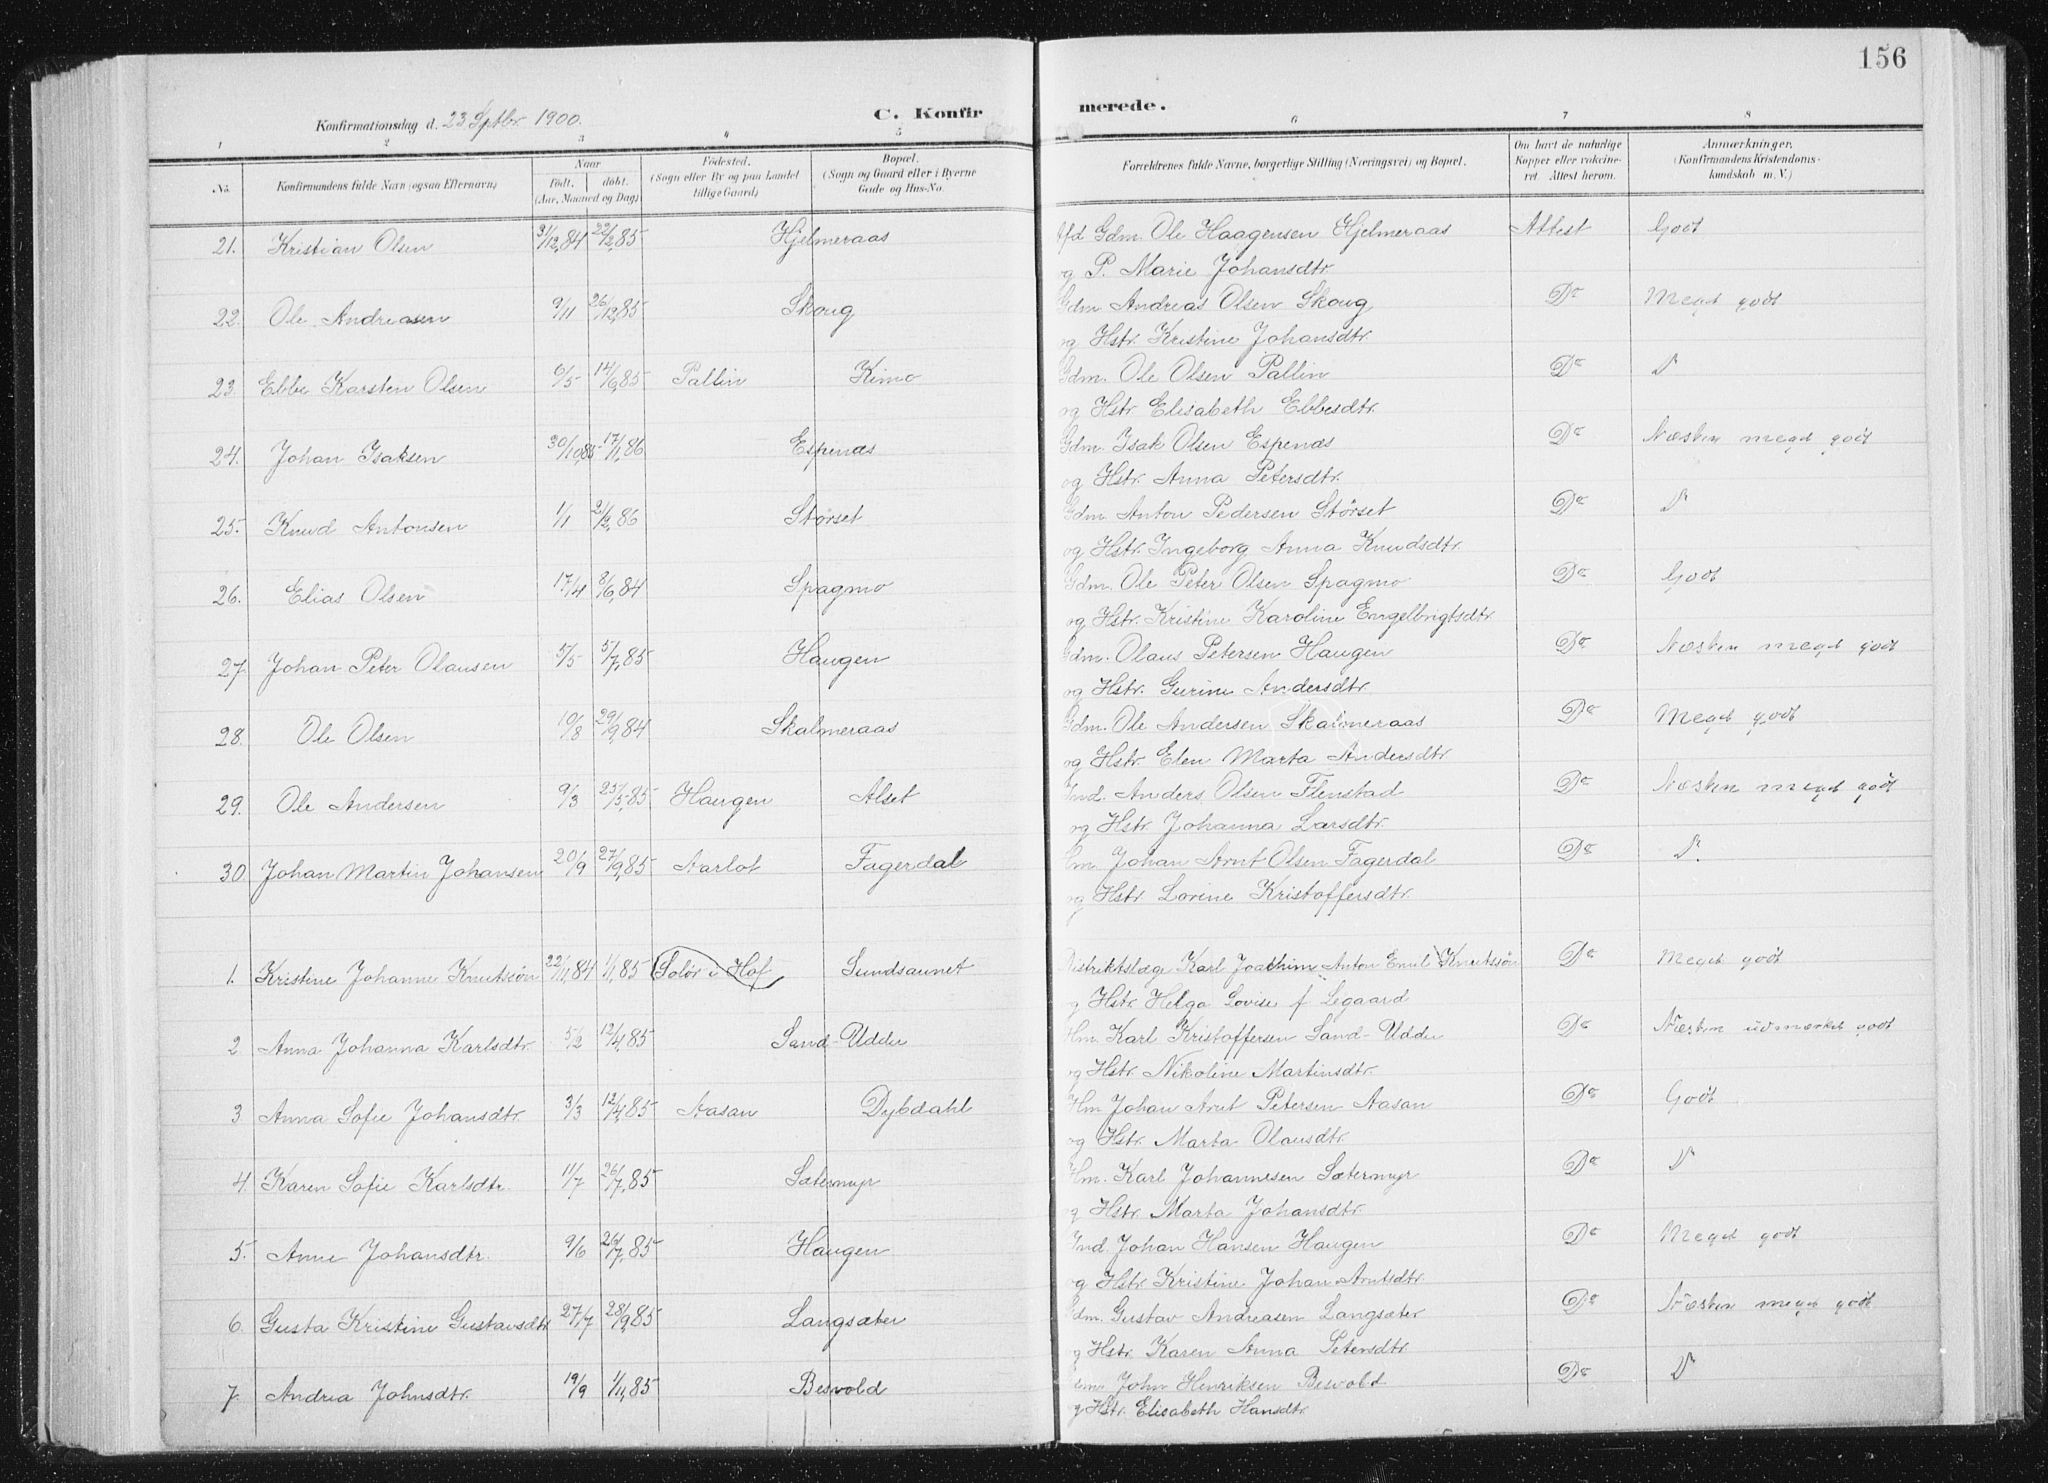 156
Konfirmationsdag d. 23 Septbr 1900.
C. Konfirmerede.
1 2 3 4 5 6 7 8
No. Konfirmandens fulde Navn (ogsaa Efternavn) Naar Født. døbt. (Aar, Maaned og Dag) Fødested. (Sogn eller By og paa Landet tillige Gaard) Bopæl. (Sogn og Gaard eller i Byerne Gade og Hus-No. Forældrenes fulde Navne, borgerlige Stilling (Næringsvei) og Bopæl. Om havt de naturlige Kopper eller vakcineret. Attest herom. Anmærkninger. (Konfirmandens Kristendomskundskab m. V.)
21. Kristian Olsen 31/12,84 22/2,85 Hjelmeraas Gdm. Ole Haagensen Hjelmeraas Attest Godt
og P. Marie Johansdtr.
22. Ole Andreasen 9/11 26/12,85 Skoug Gdm. Andreas Olsen Skoug Do Meget godt
og Hstr. Kristine Johansdtr.
23. Ebbe Karsten Olsen 6/5 14/6,85 Pallin Kimo Gdm. Ole Olsen Pallin Do D
og Hstr. Elisabeth Ebbesdtr.
24. Johan Isaksen 30/10,85 17/1,86 Espenæs Gdm. Isak Olsen Espenæs Do Næsten meget godt
og Hstr. Anna Petersdtr.
25. Knud Antonsen 1/1 21/2,86 Størset Gdm. Anton Pedersen Størset Do D
og Hstr. Ingeborg Anna Knudsdtr.
26. Elias Olsen 17/4 8/6,84 Spagmo Gdm. Ole Peter Olsen Spagmo Do Godt
og Hstr. Kristine Karoline Engelbrigtsdtr.
27. Johan Peter Olausen 5/5 5/7,85 Haugen Gdm. Olaus Petersen Haugen Do Næsten meget godt
og Hstr. Gurine Andersdtr.
28. Ole Olsen 10/8 29/9,84 Skalmeraas Gdm. Ole Andersen Skalmeraas Do Meget godt
og Hstr. Elen Marta Andersdtr.
29. Ole Andersen 9/3 25/5,85 Haugen Alset Ind. Anders Olsen Flenstad Do Næsten meget godt
og Hstr. Johanna Larsdtr.
30. Johan Martin Johansen 20/9 27/9,85 Aarlot Fagerdal Hm. Johan Arnt Olsen Fagerdal Do D.
og Hstr. Lorine Kristoffersdtr.
1. Kristine Johanne Knutssøn 22/11,84 1/1,85 Solør i Hof Sundsaunet Distriktslæge Karl Joachim Anton Emil Knutssøn Do Meget godt
og Hstr. Helga Lovise f Legaard
2 Anna Johanna Karlsdtr. 5/2 12/4,85 Sand-Udder Hm. Karl Kristoffersen Sand-Udde Do Næsten udmærket godt
og Hstr. Nikoline Martinsdtr.
3 Anna Sofie Johansdtr. 3/3 12/4,85 Aasan Dybdahl Hm. Johan Arnt Petersen Aasan Do Godt
og Hstr. Marta Olausdtr.
4. Karen Sofie Karlsdtr. 11/7 26/7,85 Sætermyr Hm. Karl Johannesen Sætermyr Do D
og Hstr. Marta Johansdtr.
5. Anne Johansdtr. 9/6 26/7,85 Haugen Ind. Johan Hansen Haugen Do Meget godt
og Hstr. Kristine Johan Arntsdtr.
6. Gusta Kristine Gustavsdtr 27/7 28/9,85 Langsæter Gdm. Gustav Andreasen Langsæter Do Næsten meget godt
og Hstr. Karen Anna Petersdtr.
7. Andrea Johnsdtr. 19/9 1/11,85 Besvold Gdm. John Henriksen Besvold Do D
og Hstr. Elisabeth Hansdtr.